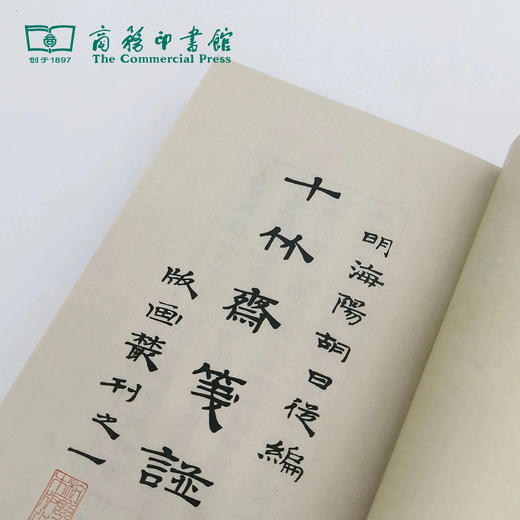 商務印書館
创于1897
The Commercial Press
明海陽胡曰從編
十竹齋箋譜
版画叢刊之一